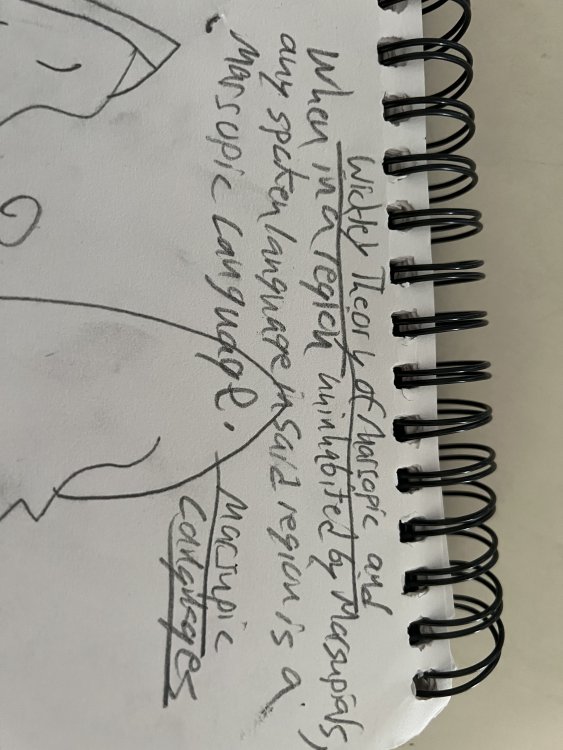 Theory of Marsopic and
When in a region uninhabited by Marsupials,
any spoken language in said region is a
Marsopic Language.
Marsupic
Languages